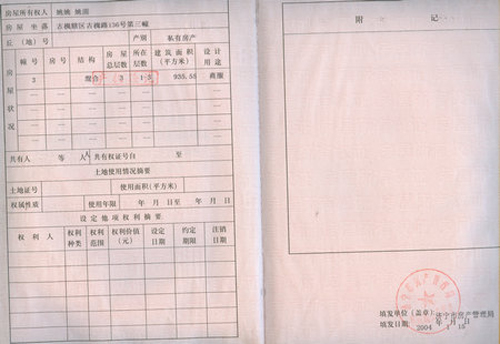 房屋所有权人 姚
房屋坐落 古槐辖区古槐路136号第三幢
丘（地）号 产别 私有房产
房屋状况
幢号 房号 结构 房屋总层数 所在层数 建筑面积（平方米） 设计用途
3 混合 3 1-3 935.55 商服
共有人 等 人 共有权证号自 至
土地使用情况摘要
土地证号 使用面积（平方米）
权属性质 使用年限 年 月 日 至 年 月 日
设定他项权利摘要
权利人 权利种类 权利范围 权利价值（元） 设定日期 约定期限 注销日期
附 记
填发单位（盖章） 济宁市房产管理局
填发日期： 2004 年 月 日